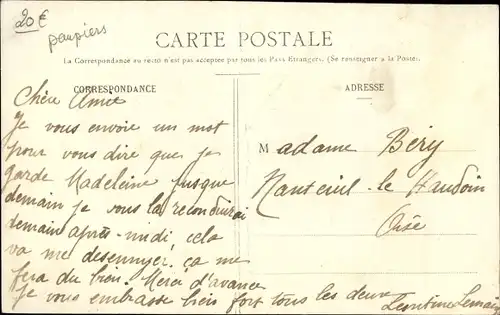 20€
pompiers
CARTE POSTALE
La Correspondance au recto n'est pas acceptée par tous les Pays Etrangers. (Se renseigner à la Poste).
CORRESPONDANCE
ADRESSE
Chère Amie
Je vous envoie un mot
pour vous dire que je
garde Madeleine jusque
demain je vous la reconduirai
demain après-midi, cela
va me desennuyer, ça me
fera du bien. Merci d'avance
Je vous embrasse bien fort tous les deux
Léontine Lemaire
Madame Béry
Nanteuil-le Haudoin
Oise